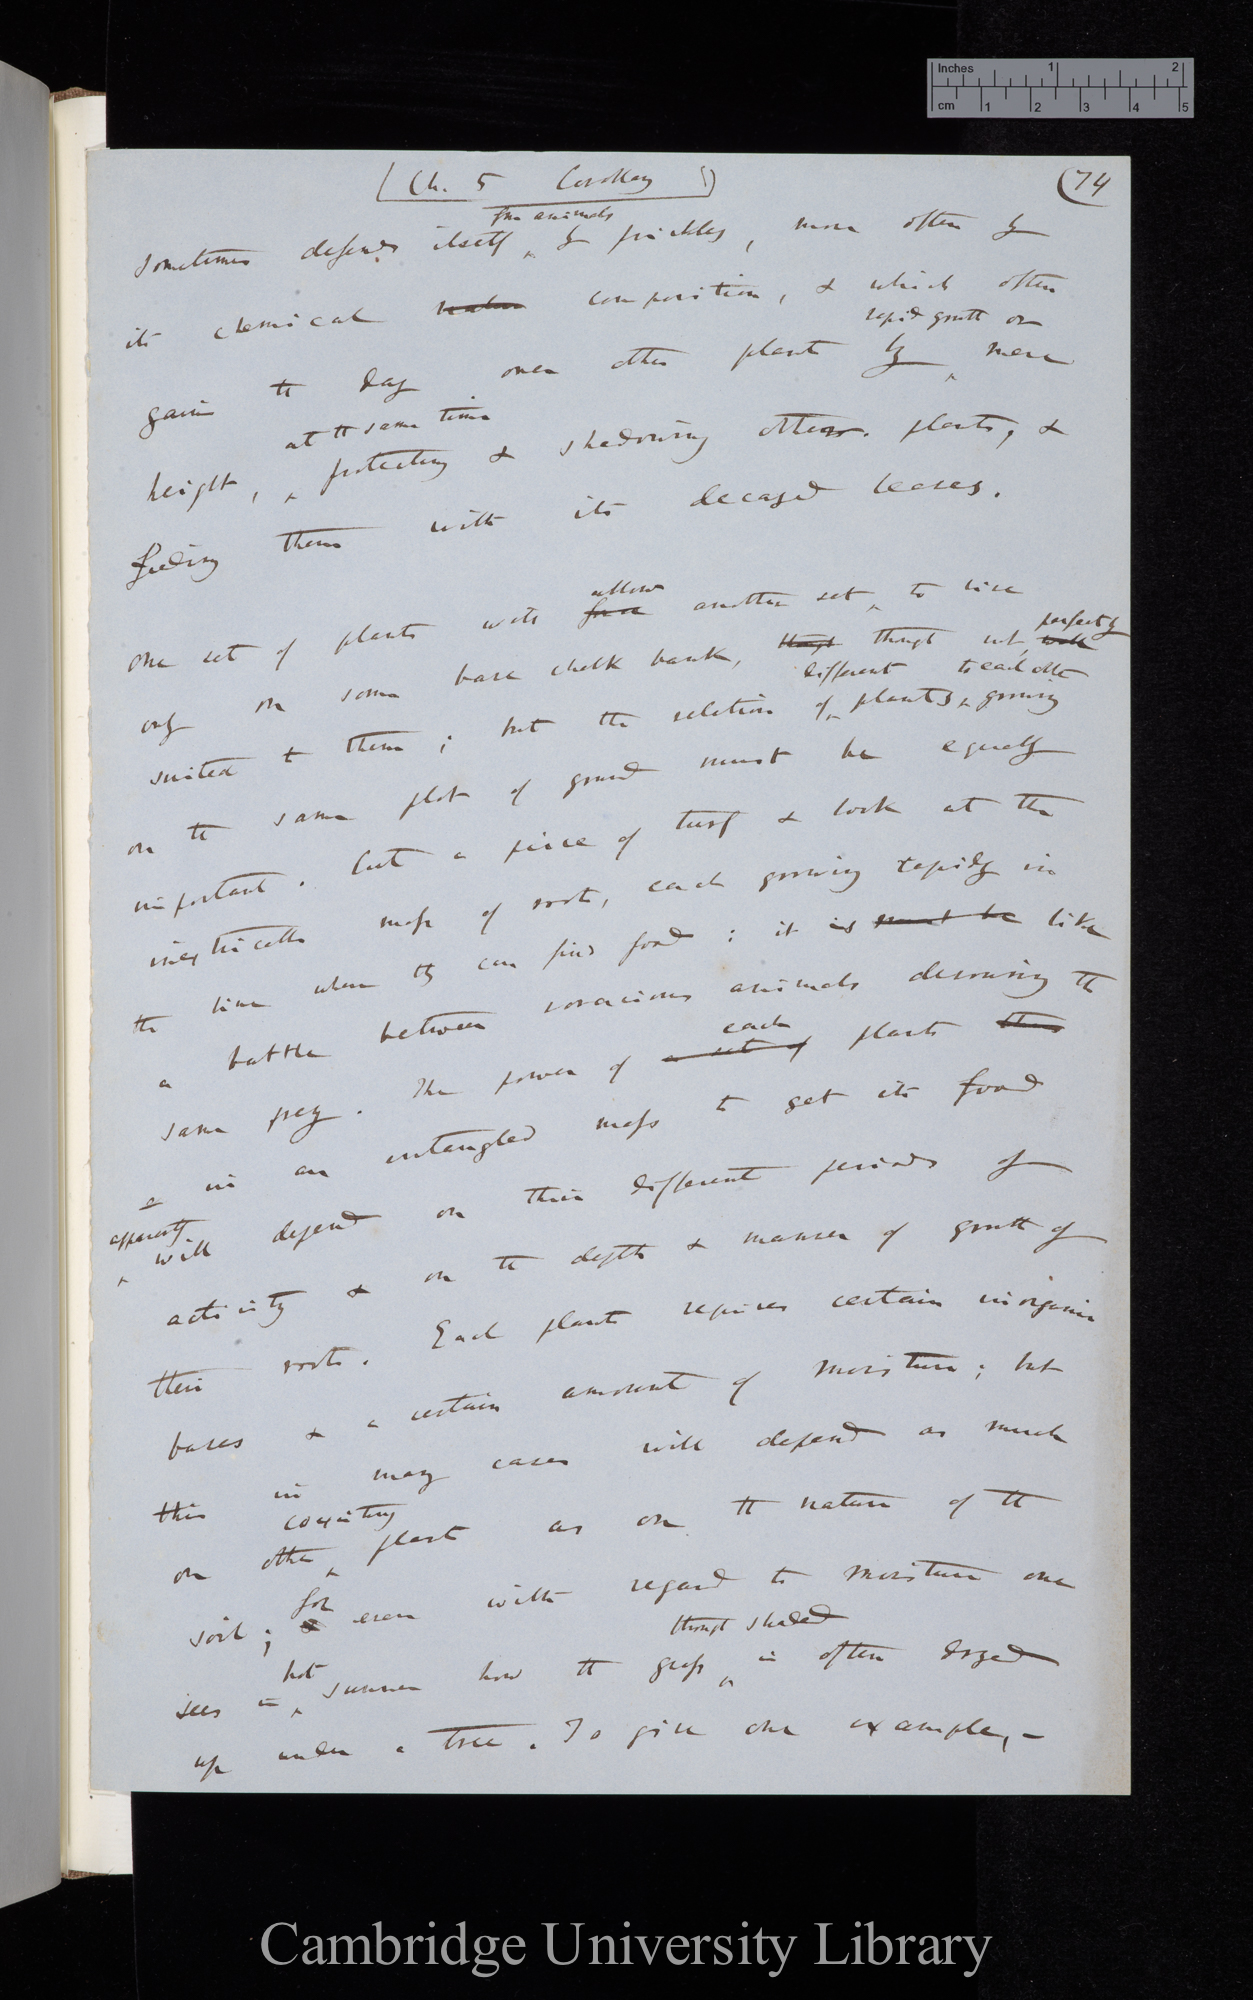 Inches 1 2
cm 1 2 3 4 5
(Ch. 5 Corollary) (74
from animals
sometimes defends itself by prickles, more often by
its chemical nature composition, & which often
rapid growth or
gains the day over other plants by mere
at the same time
height, protecting & shadowing others. plants, &
feeding them with its decayed leaves.
allow
One set of plants will force another set to live
perfectly
only on some bare chalk bank, though though not well
different to each other
suited to them; but the relation of plants, growing
on the same plot of ground must be equally
important. Cut a piece of turf & look at the
inextricable mass of roots, each growing rapidly in
the line where they can find food: it is must be like
a battle between voracious animals devouring the
each
same prey. The power of a set of plants thus
in an entangled mass to get its food
apparently
will depend on their different periods of
activity & on the depth & manner of growth of
their roots. Each plant requires certain inorganic
bases & a certain amount of moisture; but
this in many cases will depend as much
coexisting
on other plants as on the nature of the
for
soil; & even with regard to moisture one
hot though shaded
sees in summer how the grass is often dryed
up under a tree. To give one example,—
Cambridge University Library